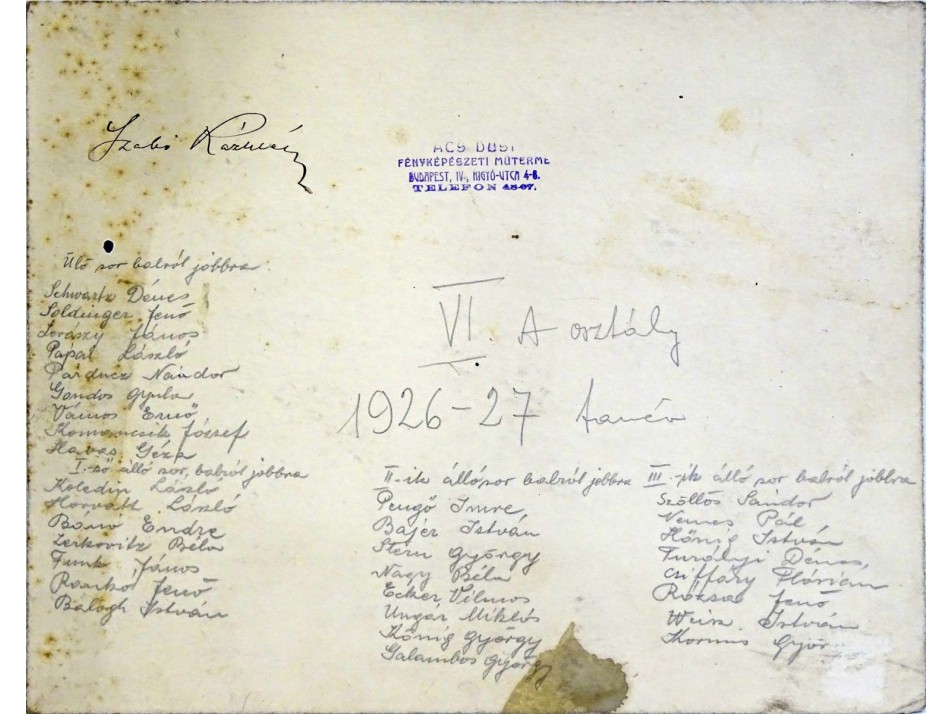 Szabó Kálmán
ÁCS DUSI
FÉNYKÉPÉSZETI MŰTERME
BUDAPEST, IV., KIGYÓ-UTCA 4-6.
TELEFON 48-07.
Ülő sor balról jobbra
Schwartz Dénes
Soldinger Jenő
Lovászy János
Pápai László
Párducz Nándor
Gondos Gyula
Vámos Ernő
Komoncsik József
Havas Géza
I.-ső álló sor, balról jobbra
Koledin László
Horváth László
Bano Endre
Zerkovitz Béla
Funk János
Rankó Jenő
Balogh István
VI. A osztály
1926-27 tanév
II-ik álló sor balról jobbra
Pengő Imre,
Bajer István
Stern György
Nagy Béla
Ecker Vilmos
Ungár Miklós
Kőnig György
Galambos György
III.-ik álló sor balról jobbra
Szöllős Sándor
Nemes Pál
Hőnig István
Turályi Dénes,
Csiffáry Flórián
Rózsa Jenő
Weisz István
Kornis